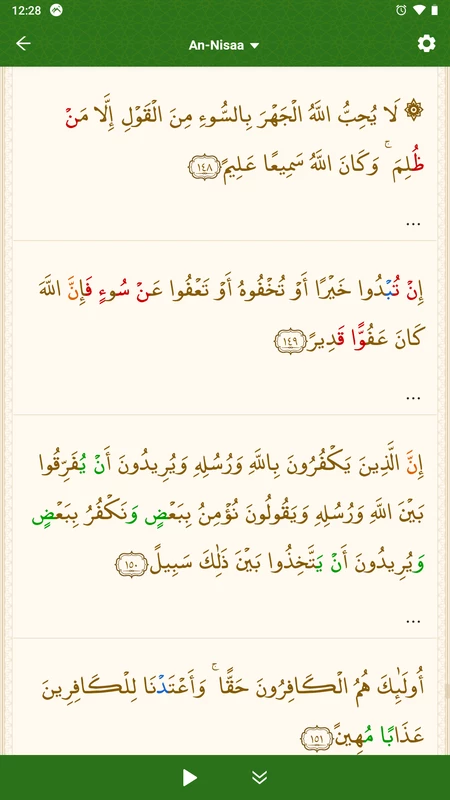 12:28
An-Nisaa
۞ لَا يُحِبُّ اللَّهُ الْجَهْرَ بِالسُّوءِ مِنَ الْقَوْلِ إِلَّا مَنْ
ظُلِمَ ۚ وَكَانَ اللَّهُ سَمِيعًا عَلِيمً ١٤٨
...
إِنْ تُبْدُوا خَيْرًا أَوْ تُخْفُوهُ أَوْ تَعْفُوا عَنْ سُوءٍ فَإِنَّ اللَّهَ
كَانَ عَفُوًّا قَدِيرً ١٤٩
...
إِنَّ الَّذِينَ يَكْفُرُونَ بِاللَّهِ وَرُسُلِهِ وَيُرِيدُونَ أَنْ يُفَرِّقُوا
بَيْنَ اللَّهِ وَرُسُلِهِ وَيَقُولُونَ نُؤْمِنُ بِبَعْضٍ وَنَكْفُرُ بِبَعْضٍ
وَيُرِيدُونَ أَنْ يَتَّخِذُوا بَيْنَ ذَٰلِكَ سَبِيلً ١٥٠
...
أُولَٰئِكَ هُمُ الْكَافِرُونَ حَقًّا ۚ وَأَعْتَدْنَا لِلْكَافِرِينَ
عَذَابًا مُهِينً ١٥١